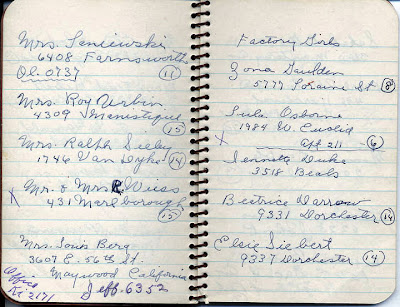 Mrs. Seniewski
6408 Farnsworth
Ol. 0737
11
Mrs. Roy Urbin
4309 Manistique
15
Mrs. Ralph Seeley
1746 Van Dyke 14
X Mr. & Mrs R. Weiss
431 Marlborough
15
Mrs. Louis Berg
3607 E. 56th St.
Maywood California
Office
Jeff. 6352
Factory Girls
Zona Gaulden
5777 Loraine St 8
Lula Osborne
1984 W. Euclid
X Apt 211 6
Duke
3518 Beals
Beatrice Darrow
9331 Dorchester 14
Elsie Siebert
9337 Dorchester 14